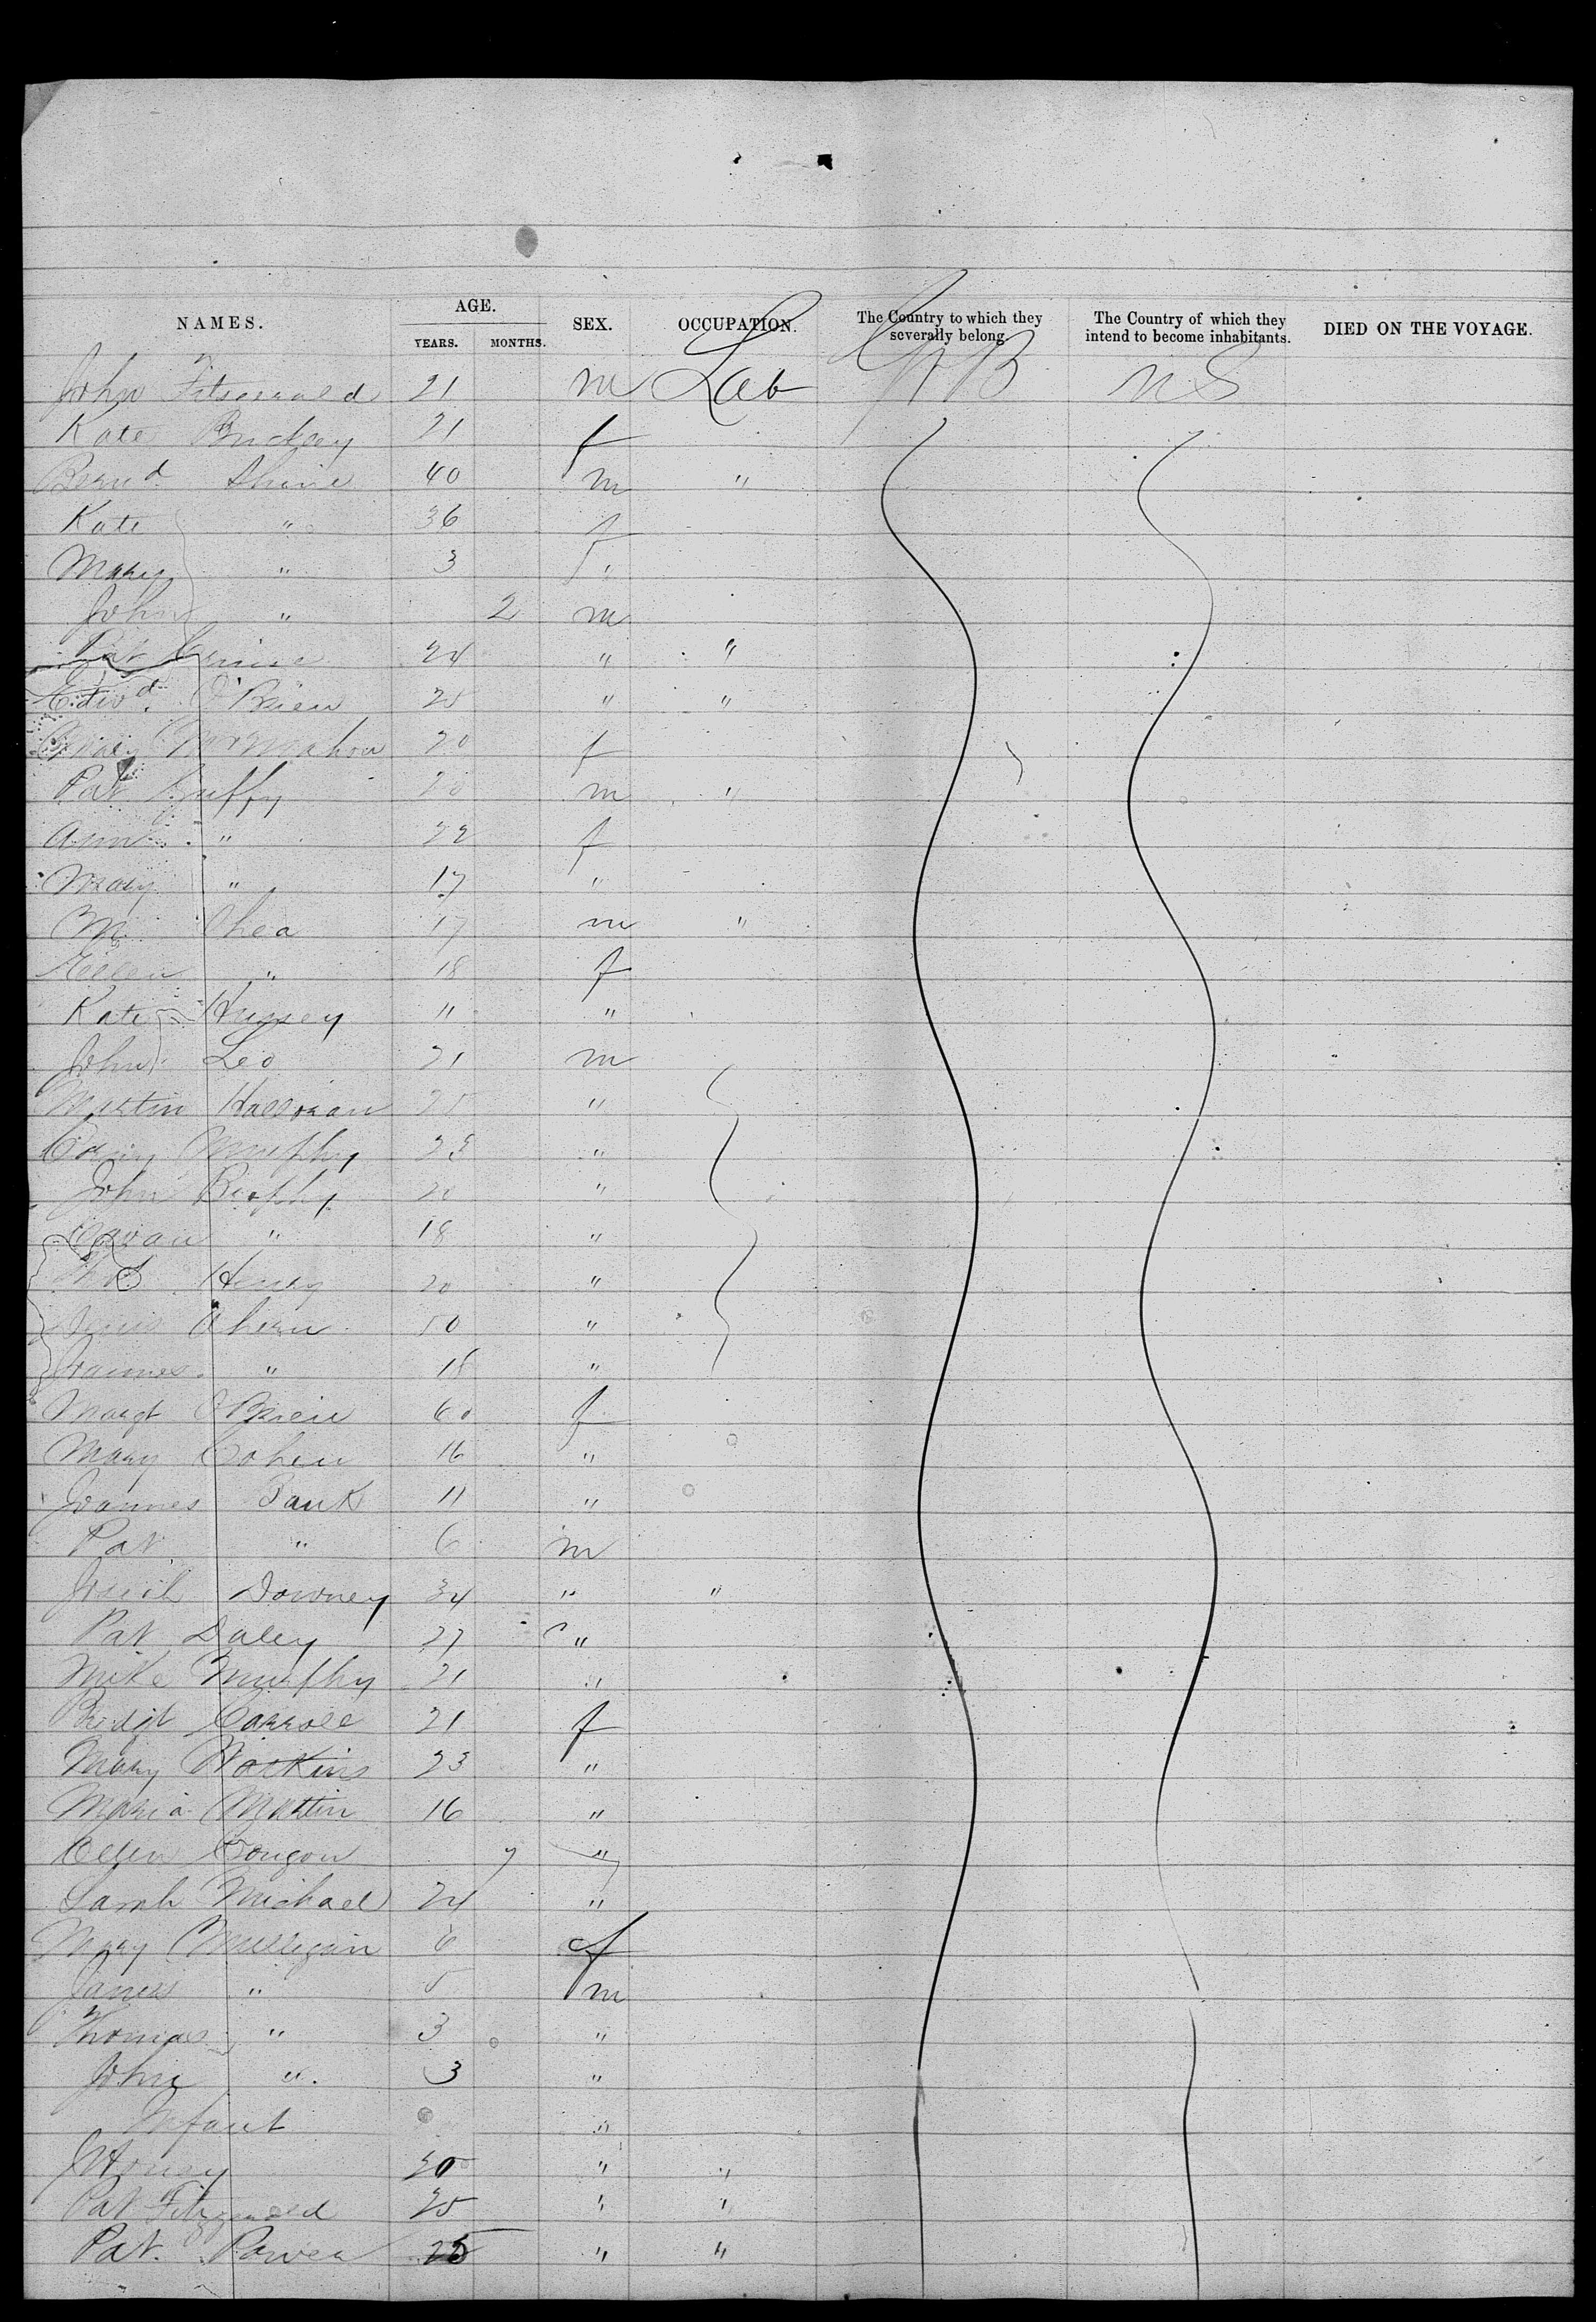 NAMES. AGE. SEX. OCCUPATION. The Country to which they severally belong. The Country of which they intend to become inhabitants. DIED ON THE VOYAGE.
YEARS. MONTHS.
John Fitzgerald 21 m Lab GB US
Kate Buckley 21 f
Bernd Shine 40 m "
Kate " 36 f
Mary " 3 "
John " 2 m
Pat 24 " "
Edwd. O'Brien 25 " "
Mary McMahon 20 f
Pat 20 m "
Ann " 22 f
Mary " 17 "
M Shea 17 m "
Ellen " 18 f
Kate Hussey " "
John Leo 21 m
Martin Halloran 25 "
Murphy 23 "
John Brophy 20 "
" 18 "
Thos Henry 20 "
Ahern 50 "
" 18 "
Margt O'Brien 60 f
Mary Cohen 16 "
11 "
Pat " 6 m
Downey 34 " "
Pat Daley 27 "
Mike Murphy 21 "
Bridgt Carroll 21 f
Mary Watkins 23 "
Maria Martin 16 "
Ellen 7 "
Sarah Michael 24 "
Mary Milligan 6 f
James " 5 m
Thomas " 3 "
John " 3 "
Infant "
30 " "
Pat Fitzgerald 25 " "
Pat. Power 25 " "